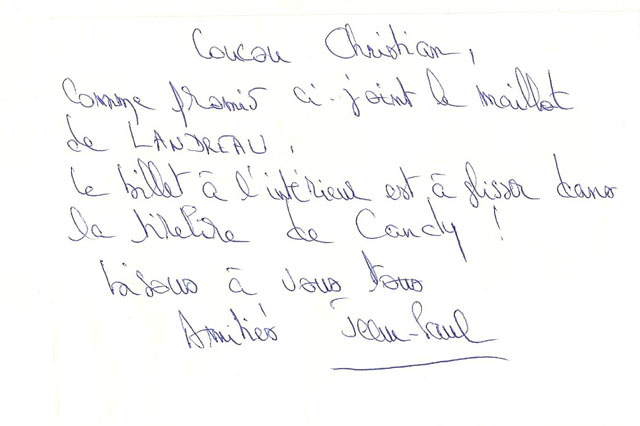 Coucou Christian,
Comme promis ci-joint le maillot
de LANDREAU.
Le billet à l'intérieur est à glisser dans
la tirelire de Candy !
bisous à vous tous
Amitiés Jean-Paul